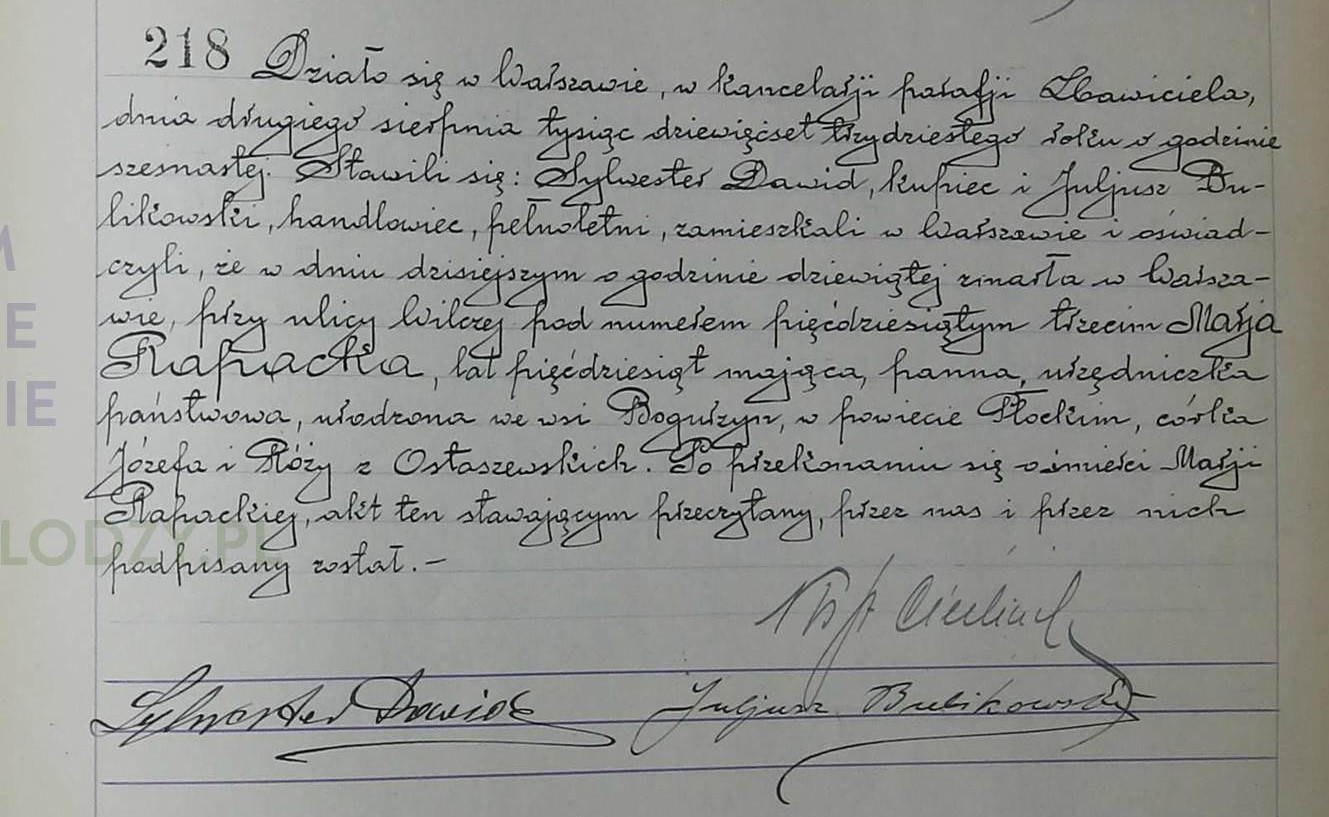 218 Działo się w Warszawie, w kancelarji parafji Zbawiciela,
dnia drugiego sierpnia tysiąc dziewięćset trzydziestego roku o godzinie
szesnastej. Stawili się: Sylwester Dawid, kupiec i Juljusz Bu-
likowski, handlowiec, pełnoletni, zamieszkali w Warszawie i oświad-
czyli, że w dniu dzisiejszym o godzinie dziewiątej zmarła w Warsza-
wie, przy ulicy Wilczej pod numerem pięćdziesiątym trzecim Marja
Rapacka, lat pięćdziesiąt mająca, panna, urzędniczka
państwowa, urodzona we wsi Boguszyn, w powiecie Płockim, córka
Józefa i Róży z Ostaszewskich. Po przekonaniu się o śmierci Marji
Rapackiej, akt ten stawającym przeczytany, przez nas i przez nich
podpisany został.-
Sylwester Dawid Juljusz Bulikowski
M
E
IE
LODZY.PL